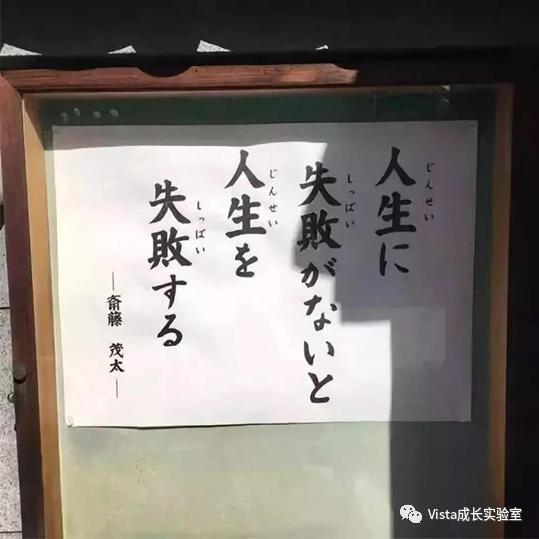 人生に
じんせい
失敗がないと
しっぱい
人生を
じんせい
失敗する
しっぱい
—斎藤 茂太—
Vista成长实验室